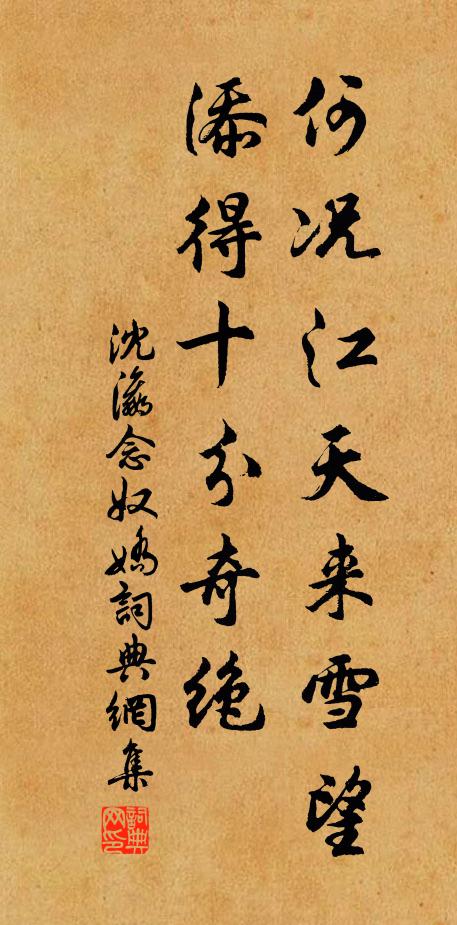 何况江天来雪望
添得十分奇绝
沈瀛念奴嬌詞典網集
詞典网印